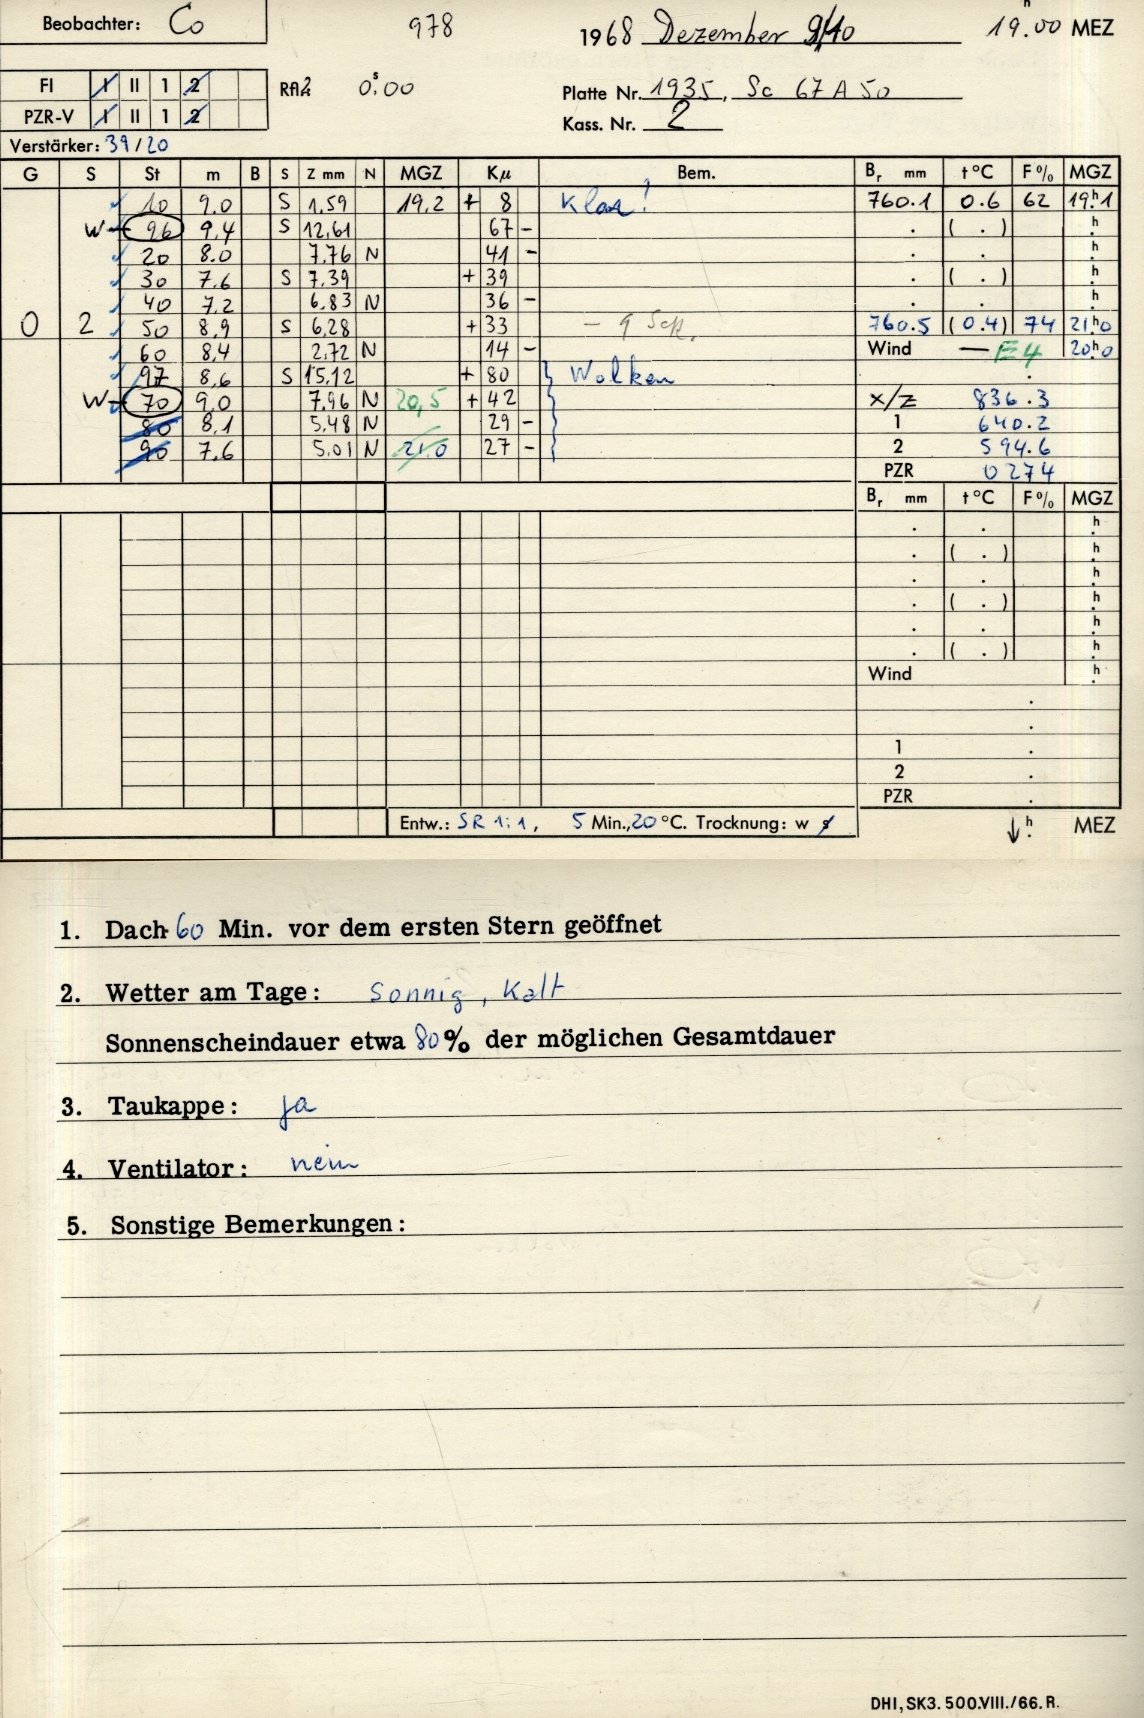 Beobachter: Co 978 1968 Dezember 9/10 19.00 h MEZ
FI I II 1 2 Rfl2 0.00 s Platte Nr. 1935, Sc 67 A 50
PZR-V I II 1 2 Kass. Nr. 2
Verstärker: 39/20
G S St m B S Z mm N MGZ Kµ Bem. Br mm t°C F% MGZ
10 9.0 S 1.59 19.2 + 8 Klar! 760.1 0.6 62 19h1
W 96 9.4 S 12.61 67 - . ( . ) h.
20 8.0 7.76 N 41 - . . h.
30 7.6 S 7.39 + 39 . ( . ) h.
40 7.2 6.83 N 36 - . . h.
0 2 50 8.9 S 6.28 + 33 - 9 760.5 (0.4) 74 21h0
60 8.4 2.72 N 14 - Wind — E4 20h0
97 8.6 S 15.12 + 80 Wolken .
W 70 9.0 7.96 N 20,5 + 42 x/z 836.3
80 8.1 5.48 N 29 - 1 640.2
90 7.6 5.01 N 21.0 27 - 2 594.6
PZR 0274
Br mm t°C F% MGZ
. . h.
. ( . ) h.
. . h.
. ( . ) h.
. . h.
. ( . ) h.
Wind h.
.
.
1 .
2 .
PZR .
Entw.: SR 1:1, 5 Min., 20 °C. Trocknung: w s ↓ h. MEZ
1. Dach 60 Min. vor dem ersten Stern geöffnet
2. Wetter am Tage: Sonnig, Kalt
Sonnenscheindauer etwa 80% der möglichen Gesamtdauer
3. Taukappe: ja
4. Ventilator: nein
5. Sonstige Bemerkungen:
DHI, SK3. 500.VIII./66. R.